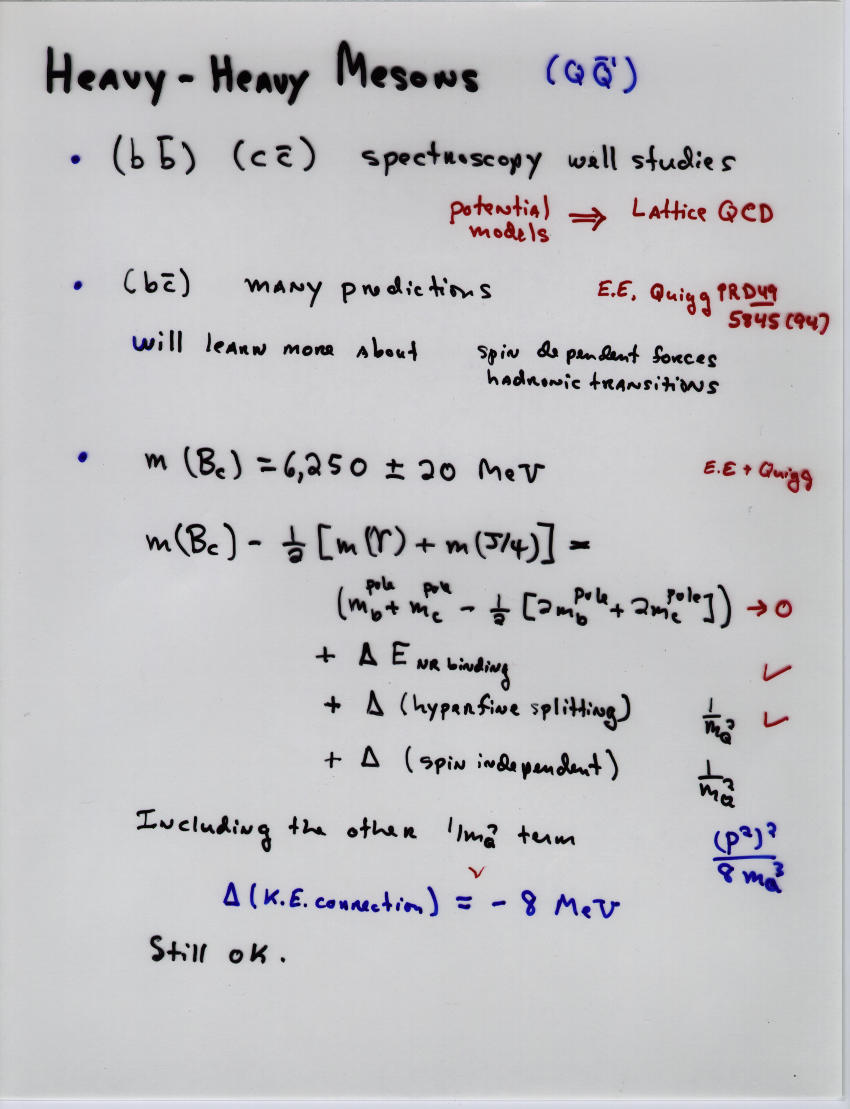 Heavy-Heavy Mesons (QQ̄')
• (bb̄) (cc̄) spectroscopy well studies
potential models ⟹ Lattice QCD
• (bc̄) many predictions E.E, Quigg PRD49
5845 (94)
will learn more about spin dependent forces
hadronic transitions
• m (Bc) = 6,250 ± 20 MeV E.E + Quigg
m(Bc) - 1/2 [m(ϒ) + m(J/ψ)] =
(m_b^pole + m_c^pole - 1/2 [2m_b^pole + 2m_c^pole]) → 0
+ Δ E NR binding ✓
+ Δ (hyperfine splitting) 1/m_Q^2 ✓
+ Δ (spin independent) 1/m_Q^2
Including the other 1/m_Q^2 term (p^2)^2 / 8 m_Q^3
Δ (K.E. correction) = - 8 MeV
Still ok.